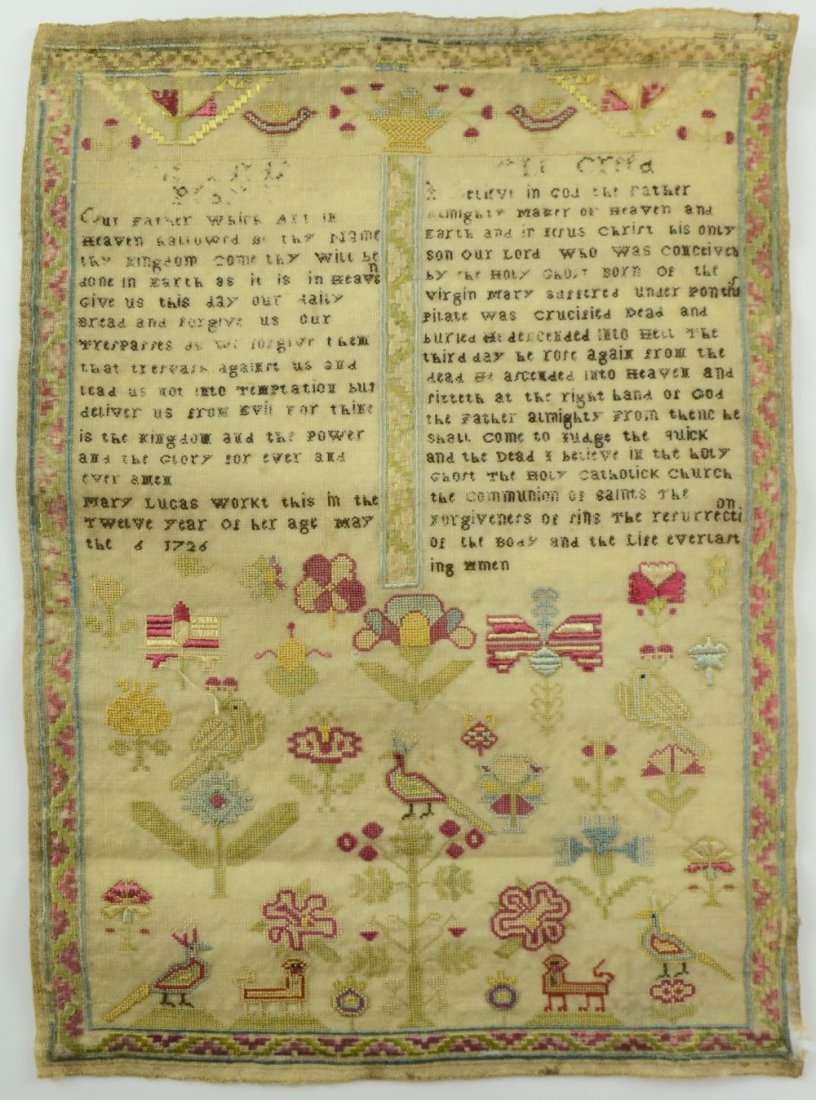 Our Father Which Art in
Heaven hallowed be thy Name
thy Kingdom Come thy Will be
done in Earth as it is in Heaven
Give us this day our daily
Bread and forgive us Our
Trespasses as we forgive them
that trespass against us and
lead us not into Temptation but
deliver us from Evil For thine
is the Kingdom and the Power
and the Glory for ever and
ever amen
Mary Lucas Workt this in the
Twelve year of her age May
the 6 1726
Creed
I Believe in God the Father
Almighty Maker of Heaven and
Earth and in Jesus Christ his only
son Our Lord Who Was Conceived
by the Holy Ghost Born of the
Virgin Mary suffered under Pontius
Pilate was Crucified Dead and
buried He descended into Hell The
third day he rose again from the
dead He ascended into Heaven and
sitteth at the right hand of God
the Father almighty From thenc he
shall Come to Judge the quick
and the Dead I believe in the holy
Ghost The Holy Catholick Church
the Communion of saints The
Forgiveness of sins The resurrection
of the Body and the Life everlast
ing Amen